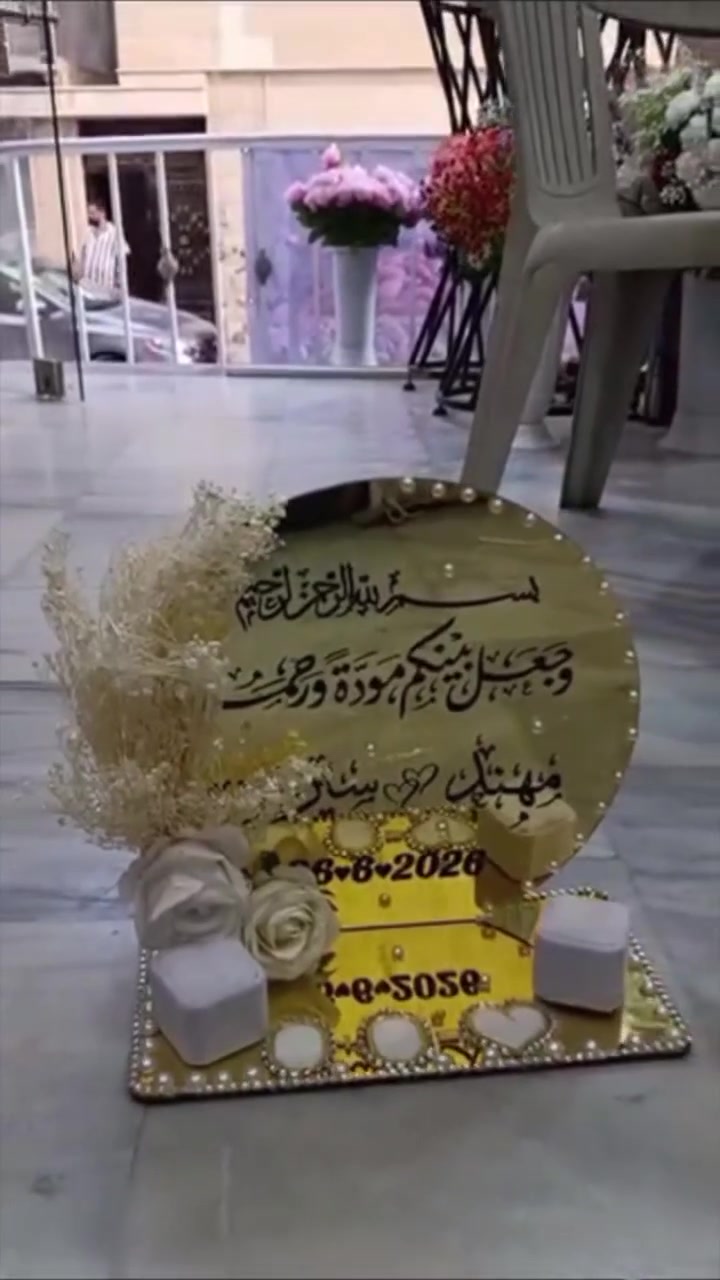 بسم الله الرحمن الرحيم
وَجَعَلَ بَيْنَكُم مَوَدَّةً وَرَحمـ
مهند
6♥6♥2026